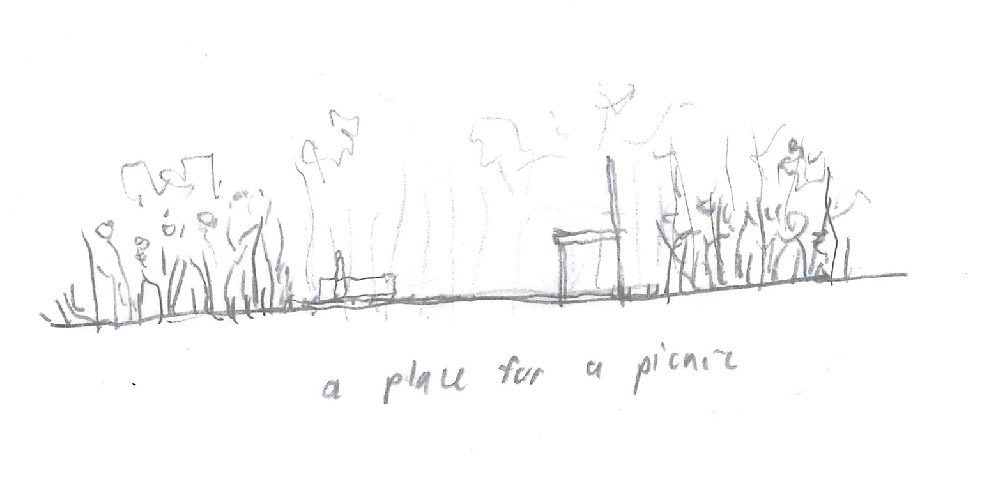 a place for a picnic